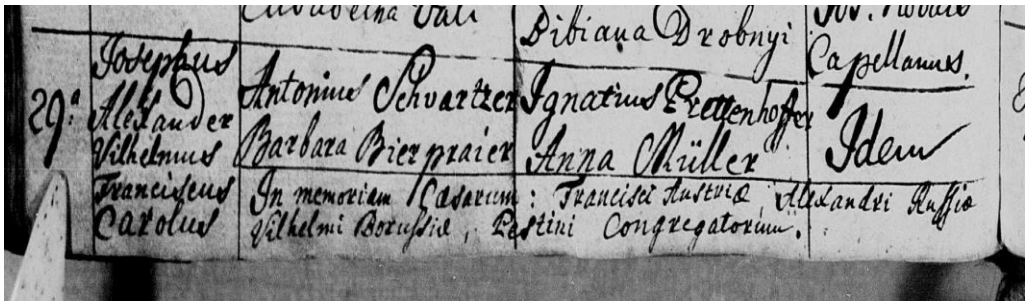 Elisabetha Vali
Bibiana Drobnyi
Capellanus.
29ª
Josephus
Alexander
Vilhelmus
Franciscus
Carolus
Antonius Schvartzer
Barbara Bierpraier
Ignatius Prettenhoffer
Anna Müller
Idem
In memoriam Caesarum: Francisci Austriae, Alexandri Russiae
Vilhelmi Borussiae, Pestini Congregatorum.